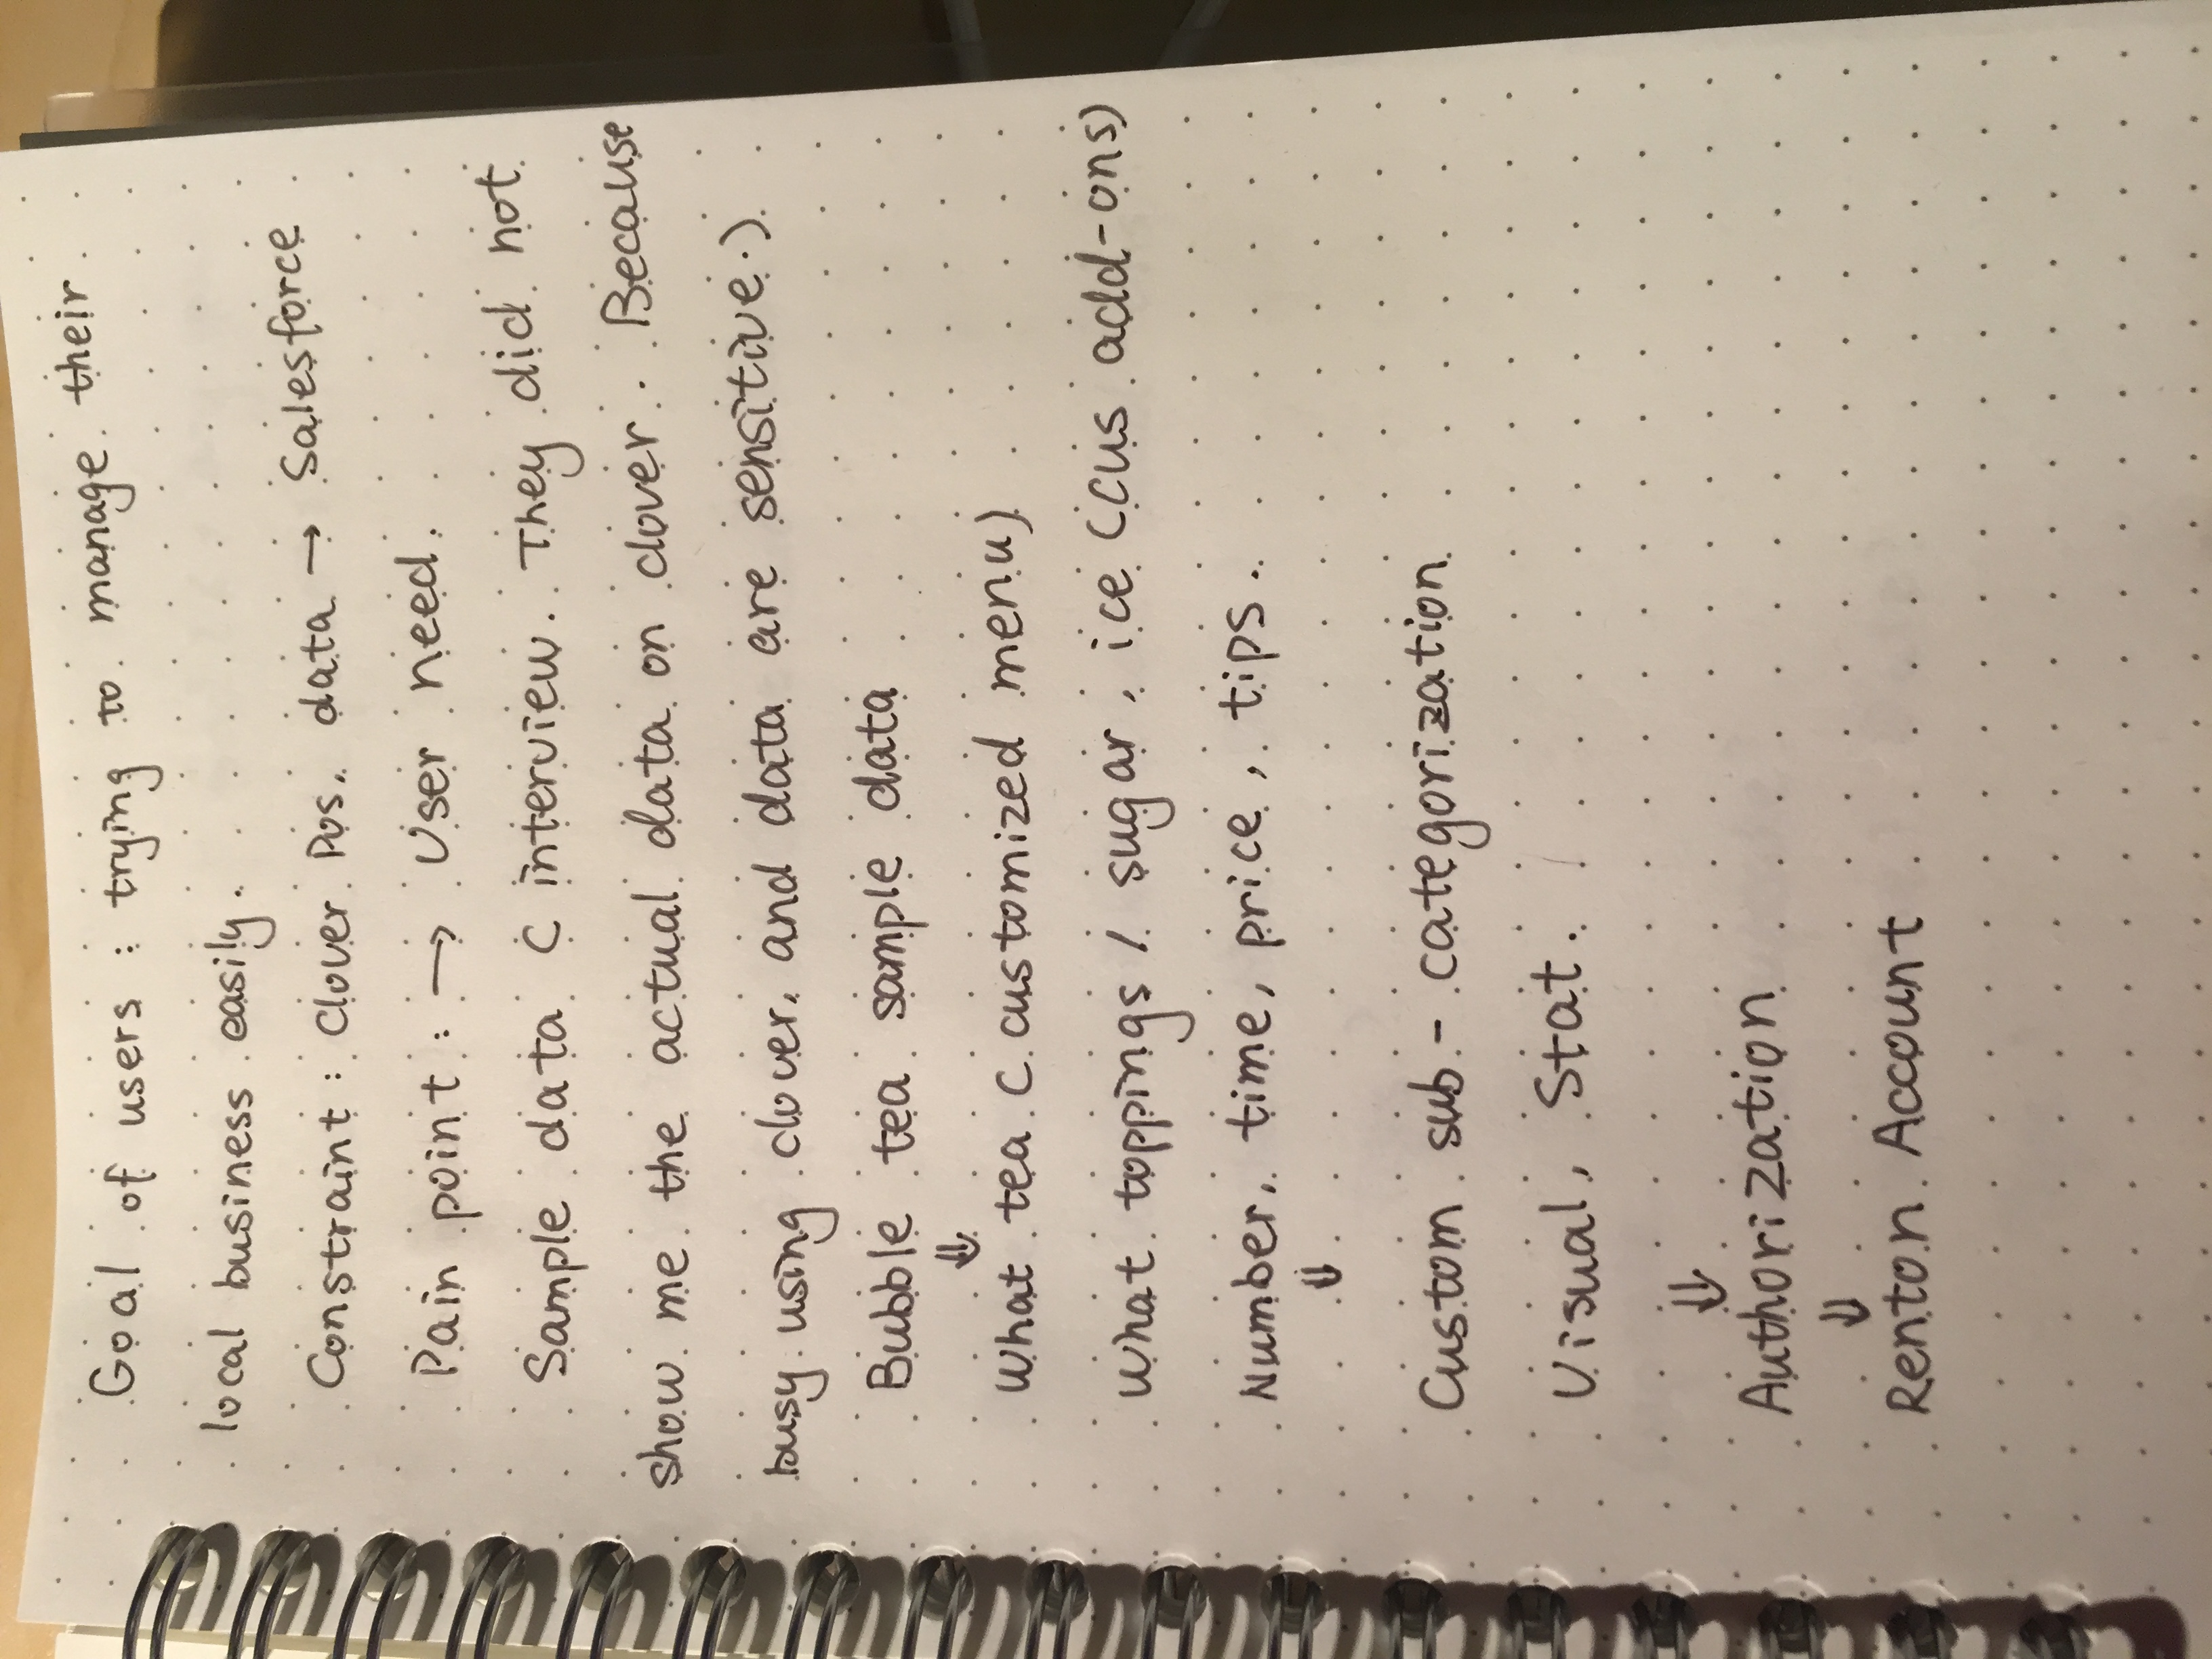 Goal of users : trying to manage their
local business easily.
Constraint : Clover Pos. data → Salesforce
Pain point : → User need.
Sample data ( interview. They did not
show me the actual data on clover. Because
busy using clover, and data are sensitive.)
Bubble tea sample data
⇓
What tea ( customized menu)
What toppings / sugar, ice (cus add-ons)
Number, time, price, tips.
⇓
Custom sub - categorization
Visual, Stat.
⇓
Authorization
⇓
Renton Account